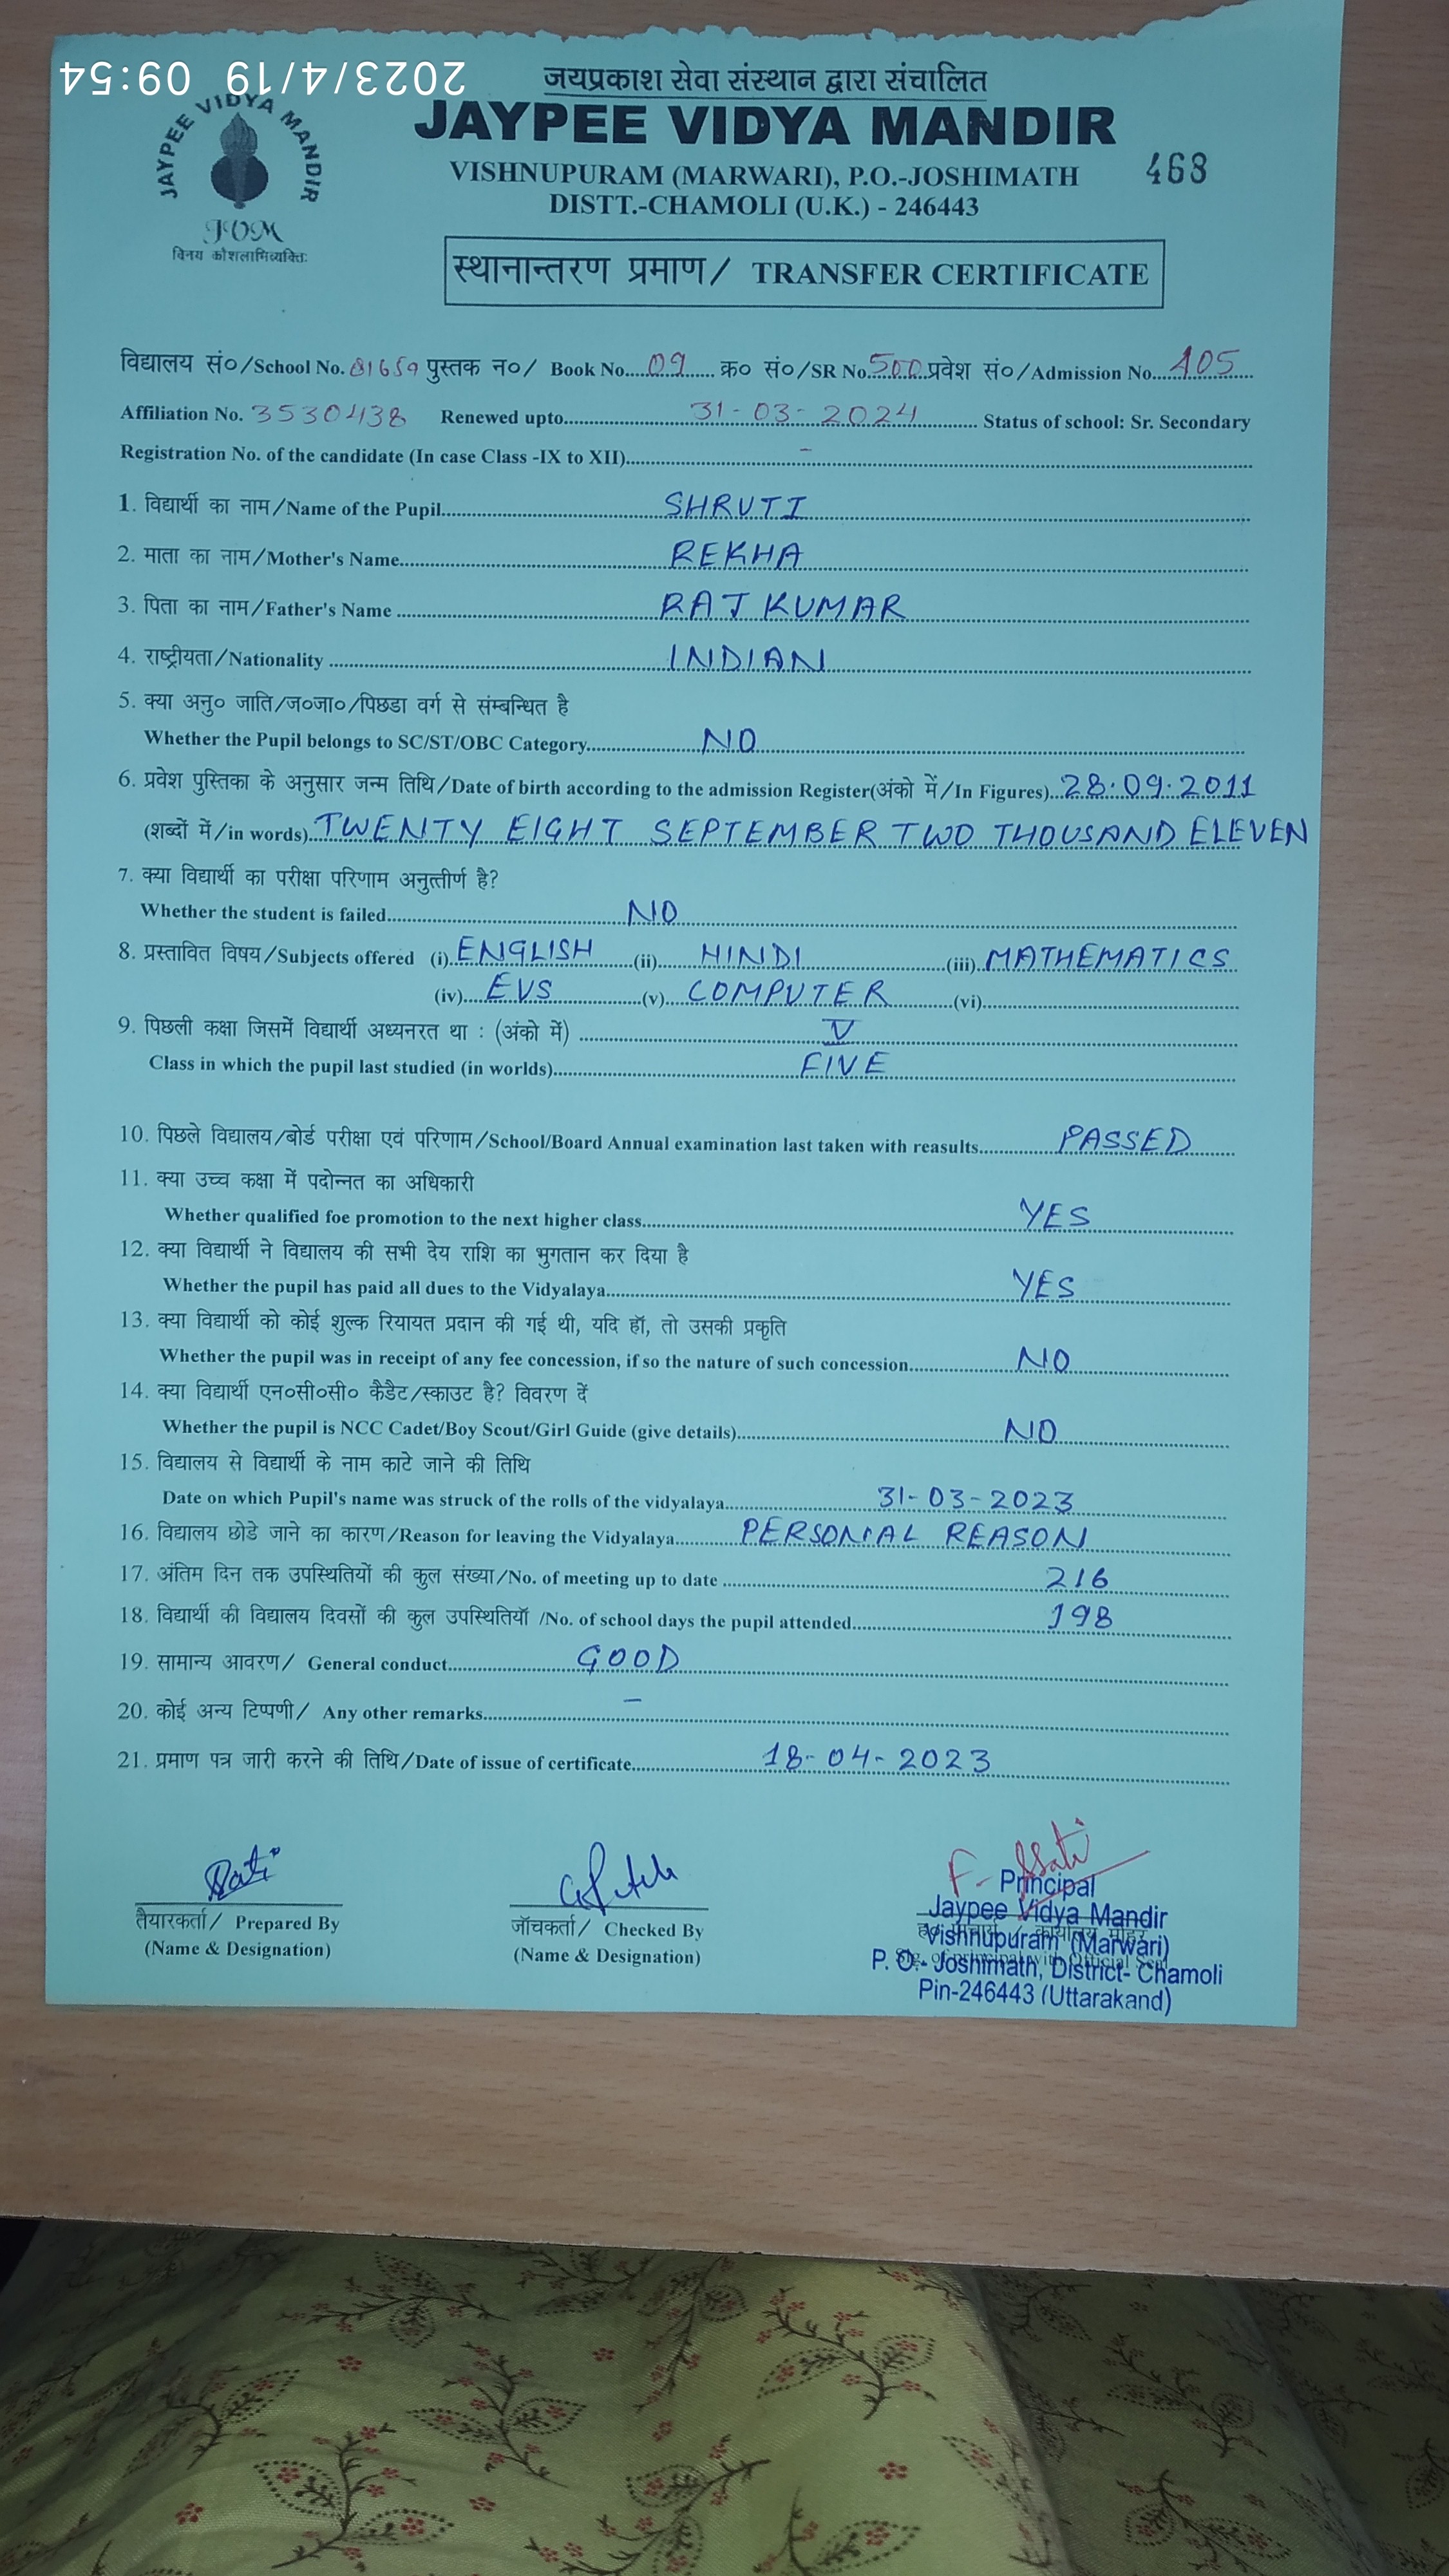 2023/4/19 09:54
जयप्रकाश सेवा संस्थान द्वारा संचालित
JAYPEE VIDYA MANDIR
JAYPEE VIDYA MANDIR
VISHNUPURAM (MARWARI), P.O.-JOSHIMATH
468
DISTT.-CHAMOLI (U.K.) - 246443
JVM
विनय कौशलाभिव्यक्तिः
स्थानान्तरण प्रमाण/ TRANSFER CERTIFICATE
विद्यालय सं०/School No. 81659 पुस्तक न०/ Book No....09.... क्र० सं०/SR No.500 प्रवेश सं०/Admission No....405....
Affiliation No. 3530438 Renewed upto....31-03-2024.... Status of school: Sr. Secondary
Registration No. of the candidate (In case Class -IX to XII)....-....
1. विद्यार्थी का नाम/Name of the Pupil....SHRUTI....
2. माता का नाम/Mother's Name....REKHA....
3. पिता का नाम/Father's Name ....RAJ KUMAR....
4. राष्ट्रीयता/Nationality ....INDIAN....
5. क्या अनु० जाति/ज०जा०/पिछडा वर्ग से संम्बन्धित है
Whether the Pupil belongs to SC/ST/OBC Category....NO....
6. प्रवेश पुस्तिका के अनुसार जन्म तिथि/Date of birth according to the admission Register(अंको में/In Figures)...28.09.2011
(शब्दों में/in words)...TWENTY EIGHT SEPTEMBER TWO THOUSAND ELEVEN
7. क्या विद्यार्थी का परीक्षा परिणाम अनुत्तीर्ण है?
Whether the student is failed....NO....
8. प्रस्तावित विषय/Subjects offered (i).ENGLISH....(ii)....HINDI....(iii).MATHEMATICS
(iv)....EVS....(v)...COMPUTER....(vi)....
9. पिछली कक्षा जिसमें विद्यार्थी अध्यनरत था : (अंको में) ....V....
Class in which the pupil last studied (in worlds)....FIVE....
10. पिछले विद्यालय/बोर्ड परीक्षा एवं परिणाम/School/Board Annual examination last taken with reasults....PASSED....
11. क्या उच्च कक्षा में पदोन्नत का अधिकारी
Whether qualified foe promotion to the next higher class....YES....
12. क्या विद्यार्थी ने विद्यालय की सभी देय राशि का भुगतान कर दिया है
Whether the pupil has paid all dues to the Vidyalaya....YES....
13. क्या विद्यार्थी को कोई शुल्क रियायत प्रदान की गई थी, यदि हॉ, तो उसकी प्रकृति
Whether the pupil was in receipt of any fee concession, if so the nature of such concession....NO....
14. क्या विद्यार्थी एन०सी०सी० कैडैट/स्काउट है? विवरण दें
Whether the pupil is NCC Cadet/Boy Scout/Girl Guide (give details)....NO....
15. विद्यालय से विद्यार्थी के नाम काटे जाने की तिथि
Date on which Pupil's name was struck of the rolls of the vidyalaya....31-03-2023
16. विद्यालय छोडे जाने का कारण/Reason for leaving the Vidyalaya....PERSONAL REASON
17. अंतिम दिन तक उपस्थितियों की कुल संख्या/No. of meeting up to date ....216
18. विद्यार्थी की विद्यालय दिवसों की कुल उपस्थितियॉ /No. of school days the pupil attended....198
19. सामान्य आवरण/ General conduct....GOOD....
20. कोई अन्य टिप्पणी/ Any other remarks....-....
21. प्रमाण पत्र जारी करने की तिथि/Date of issue of certificate....18-04-2023
तैयारकर्ता/ Prepared By
(Name & Designation)
जॉचकर्ता/ Checked By
(Name & Designation)
Principal
Jaypee Vidya Mandir
Vishnupuram (Marwari)
P. O.- Joshimath, District- Chamoli
Pin-246443 (Uttarakand)